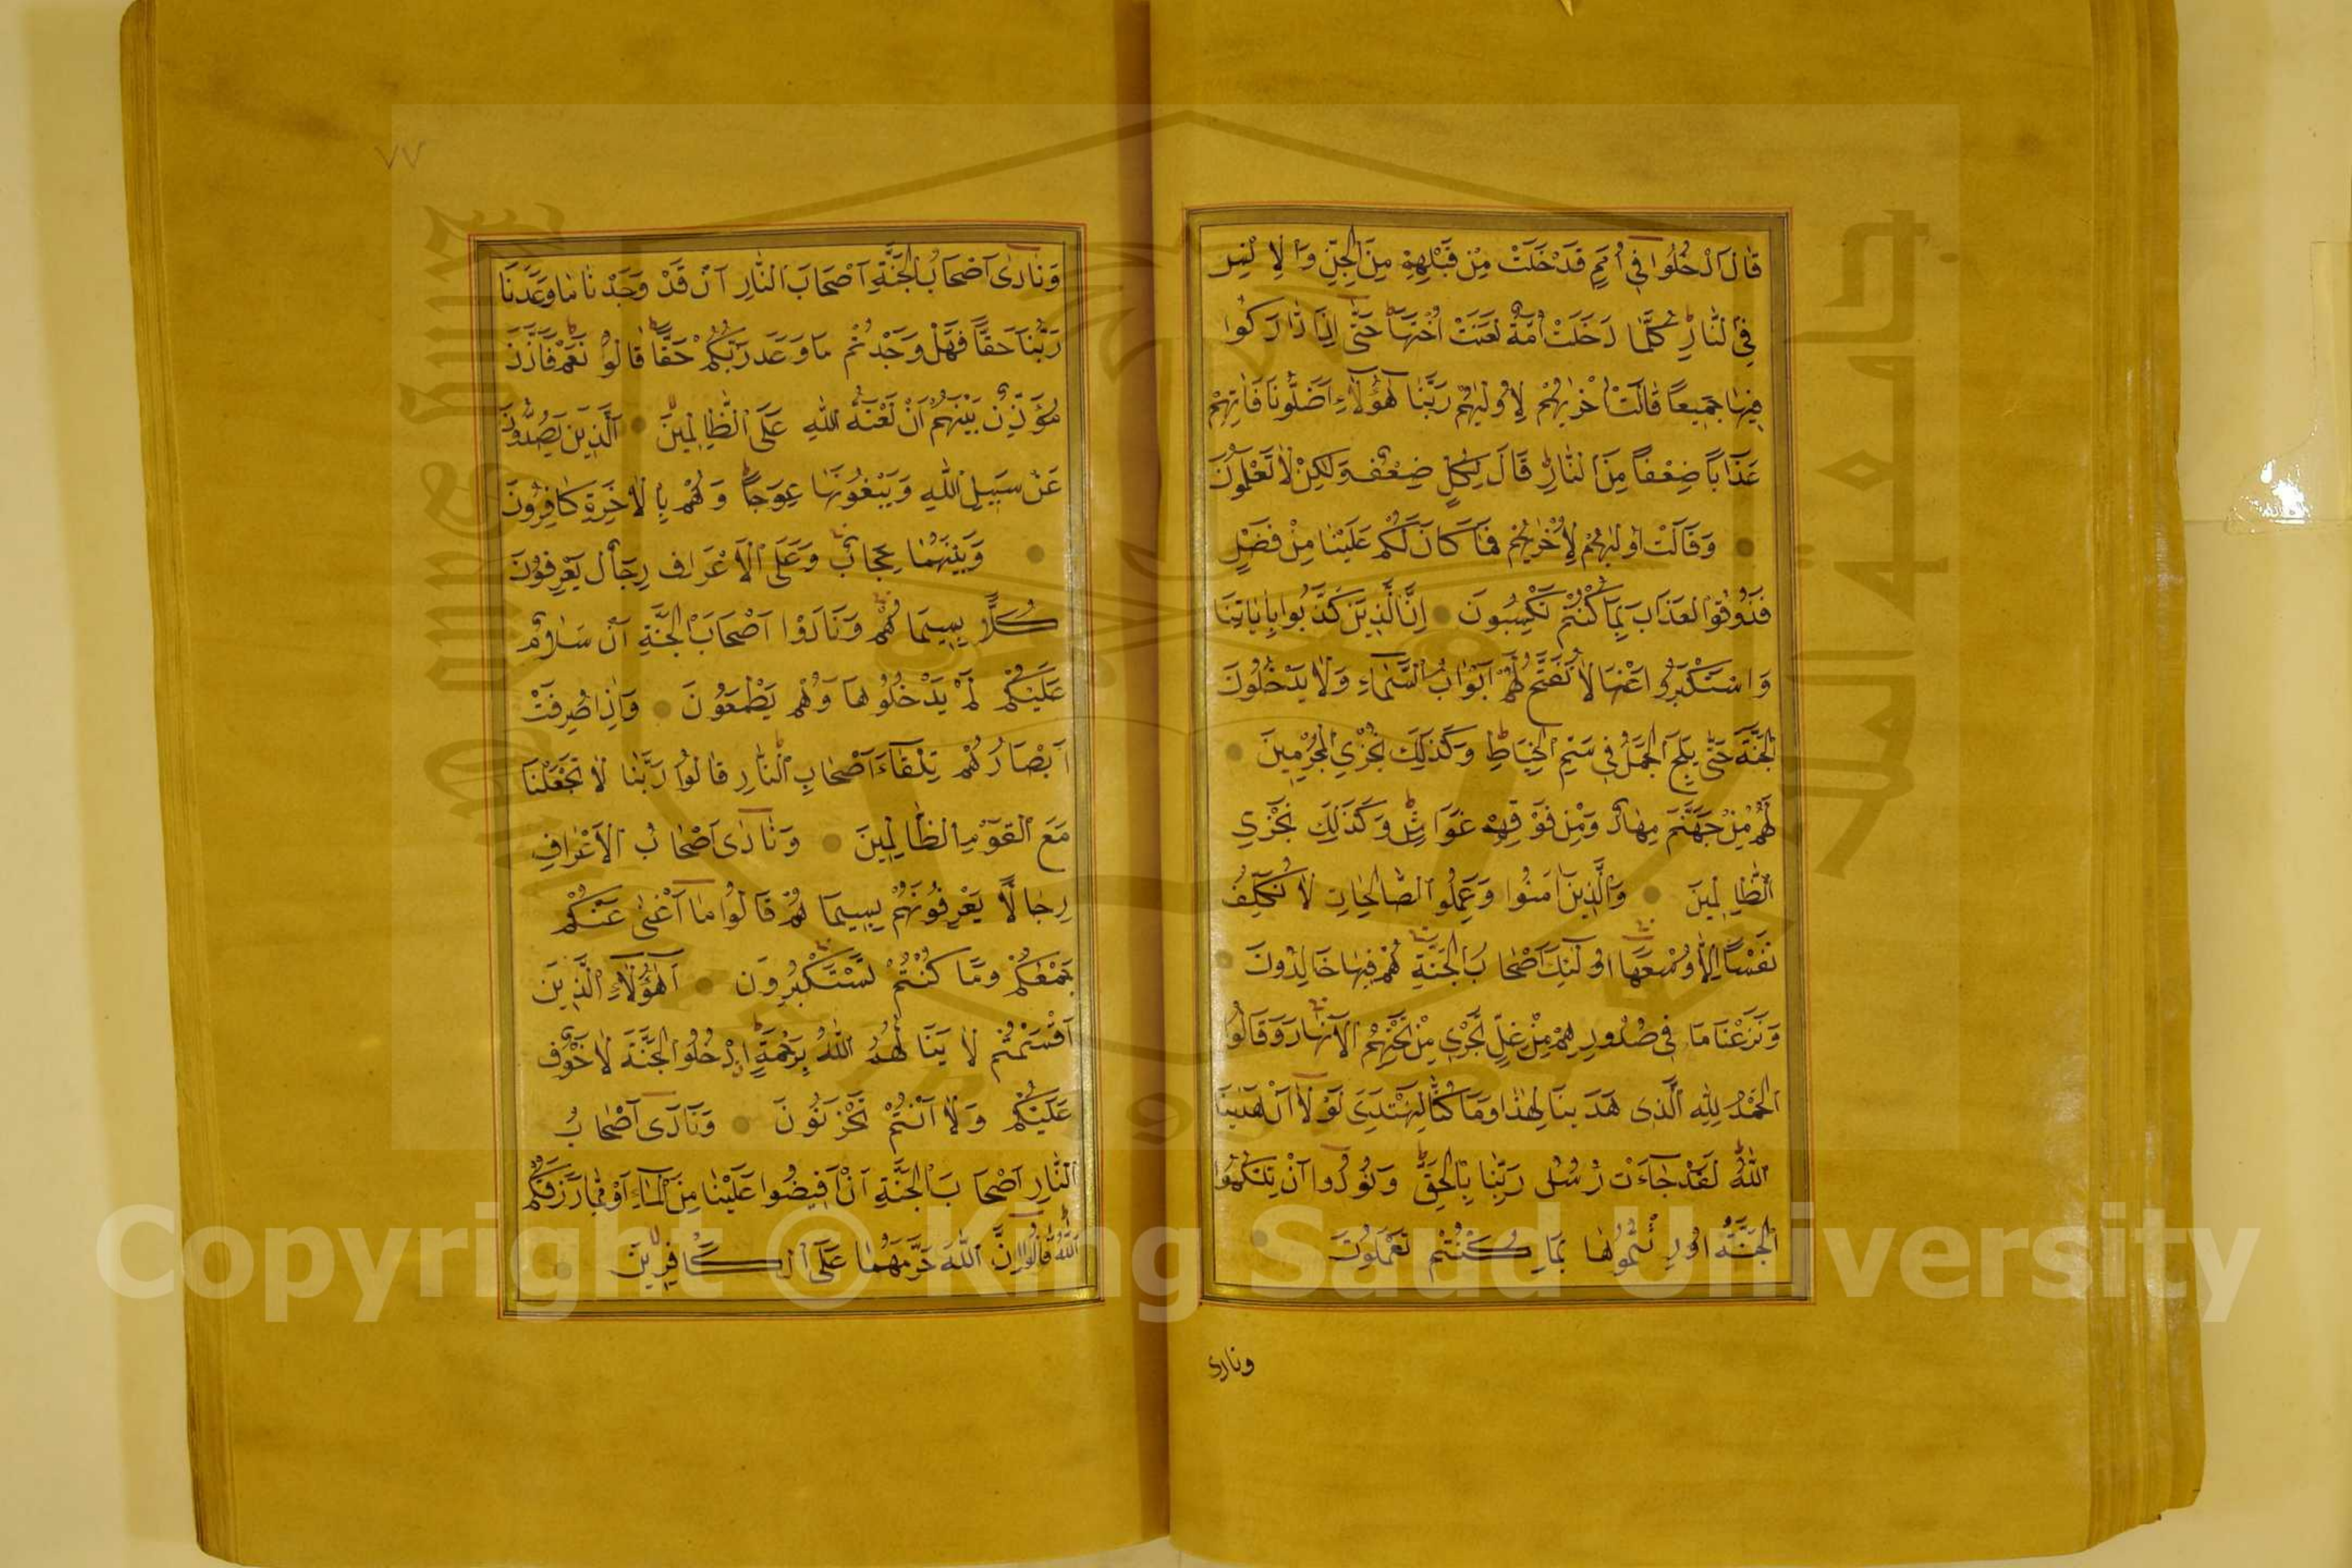 قَالَ ادْخُلُوا فِي أُمَمٍ قَدْ خَلَتْ مِنْ قَبْلِهِمْ مِنَ الْجِنِّ وَالْإِنْسِ
فِي النَّارِ كُلَّمَا دَخَلَتْ أُمَّةٌ لَعَنَتْ أُخْتَهَا حَتَّى إِذَا ادَّارَكُوا
فِيهَا جَمِيعًا قَالَتْ أُخْرٰيهُمْ لِأُولٰيهُمْ رَبَّنَا هٰؤُلَاءِ أَضَلُّونَا فَاٰتِهِمْ
عَذَابًا ضِعْفًا مِنَ النَّارِ قَالَ لِكُلٍّ ضِعْفٌ وَلٰكِنْ لَا تَعْلَمُونَ
وَقَالَتْ أُولٰيهُمْ لِأُخْرٰيهُمْ فَمَا كَانَ لَكُمْ عَلَيْنَا مِنْ فَضْلٍ
فَذُوقُوا الْعَذَابَ بِمَا كُنْتُمْ تَكْسِبُونَ إِنَّ الَّذِينَ كَذَّبُوا بِاٰيَاتِنَا
وَاسْتَكْبَرُوا عَنْهَا لَا تُفَتَّحُ لَهُمْ أَبْوَابُ السَّمَاءِ وَلَا يَدْخُلُونَ
الْجَنَّةَ حَتَّى يَلِجَ الْجَمَلُ فِي سَمِّ الْخِيَاطِ وَكَذٰلِكَ نَجْزِي الْمُجْرِمِينَ
لَهُمْ مِنْ جَهَنَّمَ مِهَادٌ وَمِنْ فَوْقِهِمْ غَوَاشٍ وَكَذٰلِكَ نَجْزِي
الظَّالِمِينَ وَالَّذِينَ اٰمَنُوا وَعَمِلُوا الصَّالِحَاتِ لَا نُكَلِّفُ
نَفْسًا إِلَّا وُسْعَهَا أُولٰئِكَ أَصْحَابُ الْجَنَّةِ هُمْ فِيهَا خَالِدُونَ
وَنَزَعْنَا مَا فِي صُدُورِهِمْ مِنْ غِلٍّ تَجْرِي مِنْ تَحْتِهِمُ الْأَنْهَارُ وَقَالُوا
الْحَمْدُ لِلّٰهِ الَّذِي هَدٰينَا لِهٰذَا وَمَا كُنَّا لِنَهْتَدِيَ لَوْلَا أَنْ هَدٰينَا
اللّٰهُ لَقَدْ جَاءَتْ رُسُلُ رَبِّنَا بِالْحَقِّ وَنُودُوا أَنْ تِلْكُمُ
الْجَنَّةُ أُورِثْتُمُوهَا بِمَا كُنْتُمْ تَعْمَلُونَ
ونادى
٧٧
وَنَادٰى أَصْحَابُ الْجَنَّةِ أَصْحَابَ النَّارِ أَنْ قَدْ وَجَدْنَا مَا وَعَدَنَا
رَبُّنَا حَقًّا فَهَلْ وَجَدْتُمْ مَا وَعَدَ رَبُّكُمْ حَقًّا قَالُوا نَعَمْ فَأَذَّنَ
مُؤَذِّنٌ بَيْنَهُمْ أَنْ لَعْنَةُ اللّٰهِ عَلَى الظَّالِمِينَ الَّذِينَ يَصُدُّونَ
عَنْ سَبِيلِ اللّٰهِ وَيَبْغُونَهَا عِوَجًا وَهُمْ بِالْاٰخِرَةِ كَافِرُونَ
وَبَيْنَهُمَا حِجَابٌ وَعَلَى الْأَعْرَافِ رِجَالٌ يَعْرِفُونَ
كُلًّا بِسِيمَاهُمْ وَنَادَوْا أَصْحَابَ الْجَنَّةِ أَنْ سَلَامٌ
عَلَيْكُمْ لَمْ يَدْخُلُوهَا وَهُمْ يَطْمَعُونَ وَإِذَا صُرِفَتْ
أَبْصَارُهُمْ تِلْقَاءَ أَصْحَابِ النَّارِ قَالُوا رَبَّنَا لَا تَجْعَلْنَا
مَعَ الْقَوْمِ الظَّالِمِينَ وَنَادٰى أَصْحَابُ الْأَعْرَافِ
رِجَالًا يَعْرِفُونَهُمْ بِسِيمَاهُمْ قَالُوا مَا أَغْنٰى عَنْكُمْ
جَمْعُكُمْ وَمَا كُنْتُمْ تَسْتَكْبِرُونَ أَهٰؤُلَاءِ الَّذِينَ
أَقْسَمْتُمْ لَا يَنَالُهُمُ اللّٰهُ بِرَحْمَةٍ ادْخُلُوا الْجَنَّةَ لَا خَوْفٌ
عَلَيْكُمْ وَلَا أَنْتُمْ تَحْزَنُونَ وَنَادٰى أَصْحَابُ
النَّارِ أَصْحَابَ الْجَنَّةِ أَنْ أَفِيضُوا عَلَيْنَا مِنَ الْمَاءِ أَوْ مِمَّا رَزَقَكُمُ
اللّٰهُ قَالُوا إِنَّ اللّٰهَ حَرَّمَهُمَا عَلَى الْكَافِرِينَ
Copyright © King Saud University
جامعة الملك سعود
King Saud University
1957